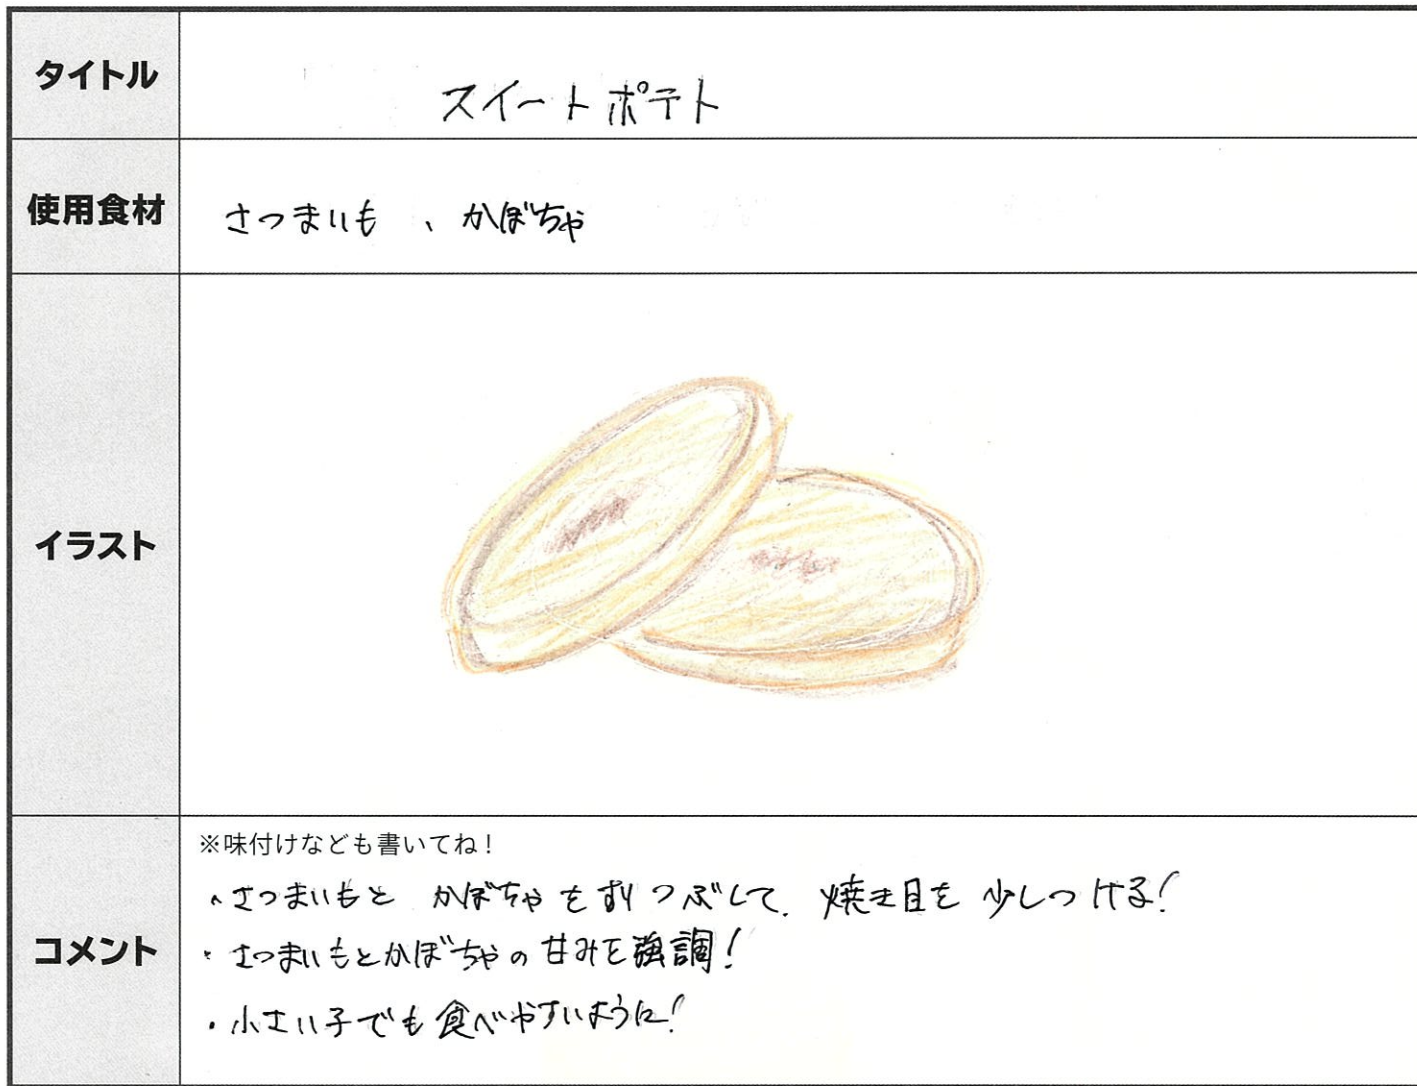 タイトル
スイートポテト
使用食材
さつまいも 、 かぼちゃ
イラスト
コメント
※味付けなども書いてね!
・さつまいもと かぼちゃをすりつぶして、焼き目を少しつける!
・さつまいもとかぼちゃの甘みを強調!
・小さい子でも食べやすいように!